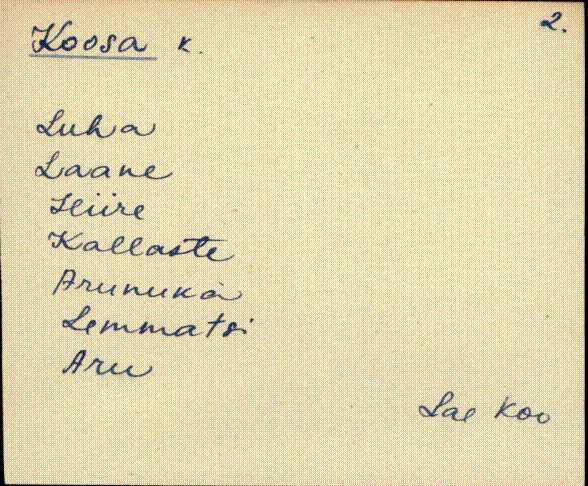 2.
Koosa k.
Luha
Laane
Kallaste
Arunuka
Lemmatsi
Aru
Koo